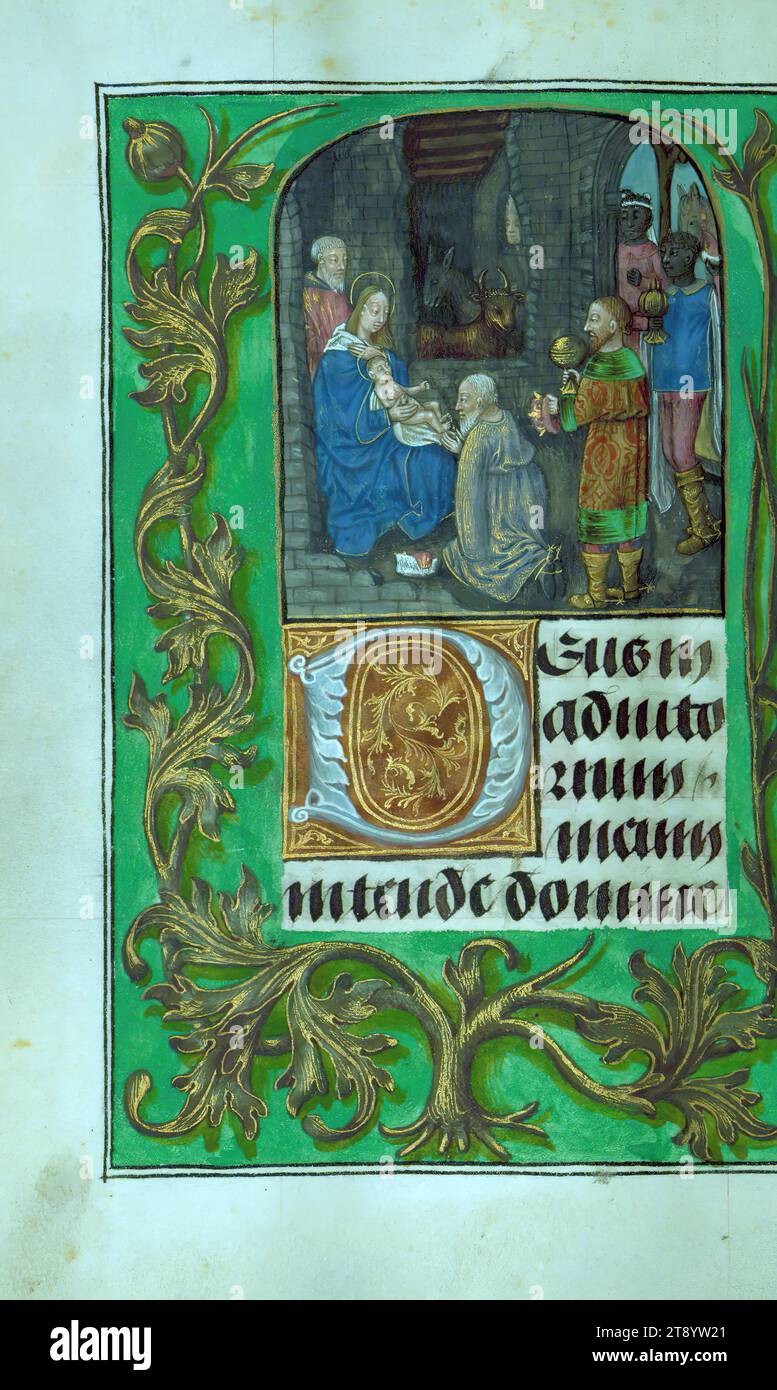 Deus in
adiuto
rium
meum
intende domine
alamy
Image ID: 2T8YW21
www.alamy.com